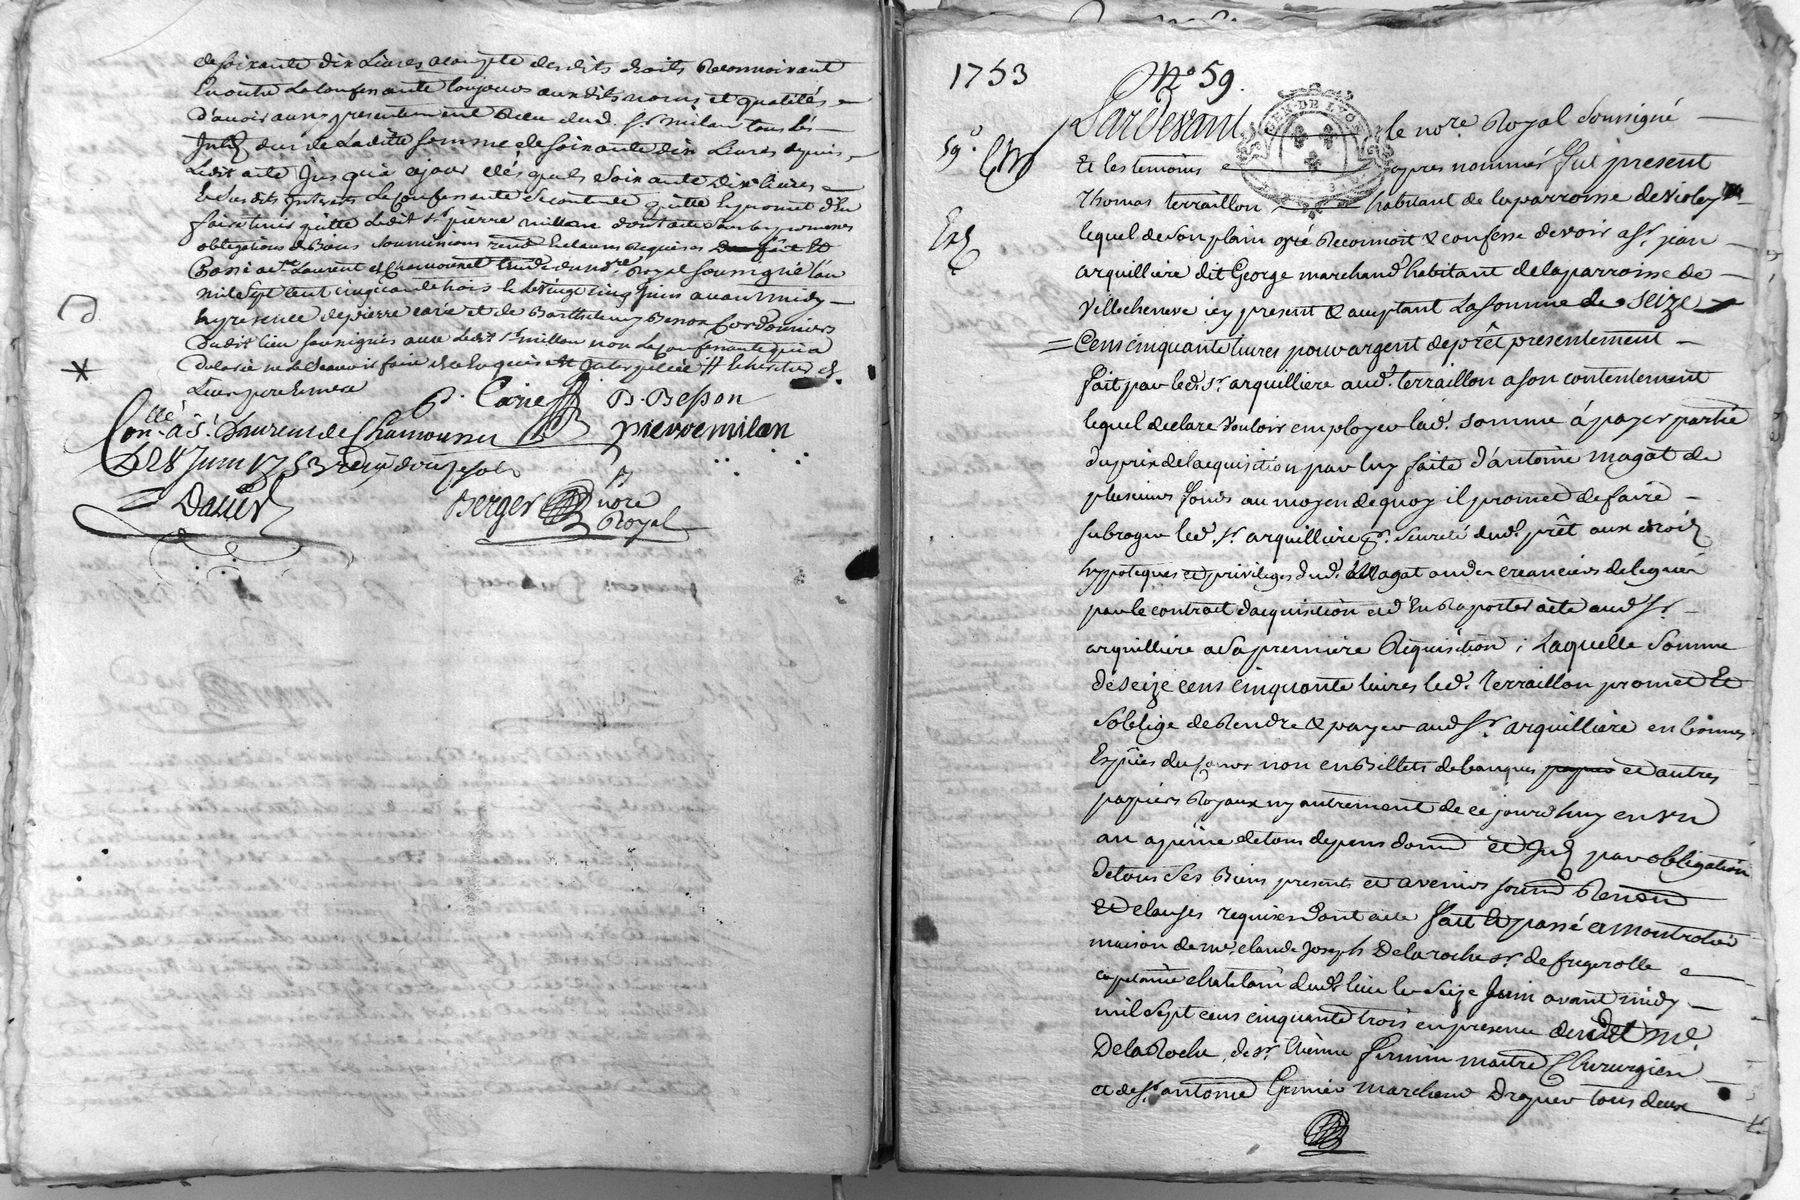 de soixante dix Livres acompte desdits droits Reconnoissant
En outre La confessante toujours aux dits noms et qualités
d'avoir aussy presentement Reçu dud. Sr. milan tous les
de Ladite somme de soixante dix Livres depuis
Ledit acte Jusqu'à ce jour desquels soixante Dix livres
Et susdits interets La confessante se contente quitte et promet d'En
faire tenir quitte Ledit Sr. pierre millan dont acte sous les promesses
obligations de Biens soumissions et clauses Requises fait et
Passé a St. Laurent de Chamousset Etude du nore. Royal soussigné L'an
mil Sept Cent cinquante trois le vingt cinq Juin avant midy
En presence de pierre carie et de Barthelemy Besson Cordonniers
dudit lieu soussignés avec Ledit Sr. millan non La confessante qui a
declaré ne Le Scavoir faire de ce Enquise et Interpellée
P. Carie B. Besson
Conllé. à St. Laurent de Chamousset pierre milan
Le 28 Juin 1753 Reçu douze sols
Berger nore
Royal
1753 No 59.
59e.
Pardevant le nore. Royal Soussigné
et les temoins apres nommés fut present
Thomas terraillon habitant de la parroisse de violey
lequel de son plain gré Reconnoit & confesse devoir a Sr. jean
arquilliere dit George marchand habitant de la parroisse de
Villecheneve icy present & acceptant La somme de seize
Cens cinquante livres pour argent de prêt presentement
fait par led. Sr. arquilliere aud. terraillon a son contentement
lequel declare vouloir employer lad. somme à payer partie
du prix de l'acquisition par luy faite d'antoine magat de
plusieurs fonds au moyen de quoy il promet de faire
subroger led. Sr. arquilliere pr. seureté dud. prêt aux droits
hypoteques et privileges dud. Magat ou des creanciers delegués
par le contrat d'acquisition et d'En Raporter acte aud. Sr.
arquilliere a sa premiere Requisition; Laquelle somme
de seize cens cinquante livres led. Terraillon promet Et
s'oblige de Rendre & payer aud Sr. arquilliere en bonnes
Espèces du cours non en Billets de banques et autres
papiers Royaux ny autrement de ce jourd'huy en un
an a peine de tous depens dom. et par obligation
de tous ses Biens presents et avenirs
Et clauses requises dont acte fait Et passé a montrotier
maison de me. claude Joseph Delaroche sr. de frigerolle
capitaine chatelain dud. lieu le seize Juin avant midy
mil sept cens cinquante trois en presence dudit me.
Dela Roche, de Sr. Etienne fermin maitre Chirurgien
et de Sr. antoine Grenier marchand Droguier tous deux